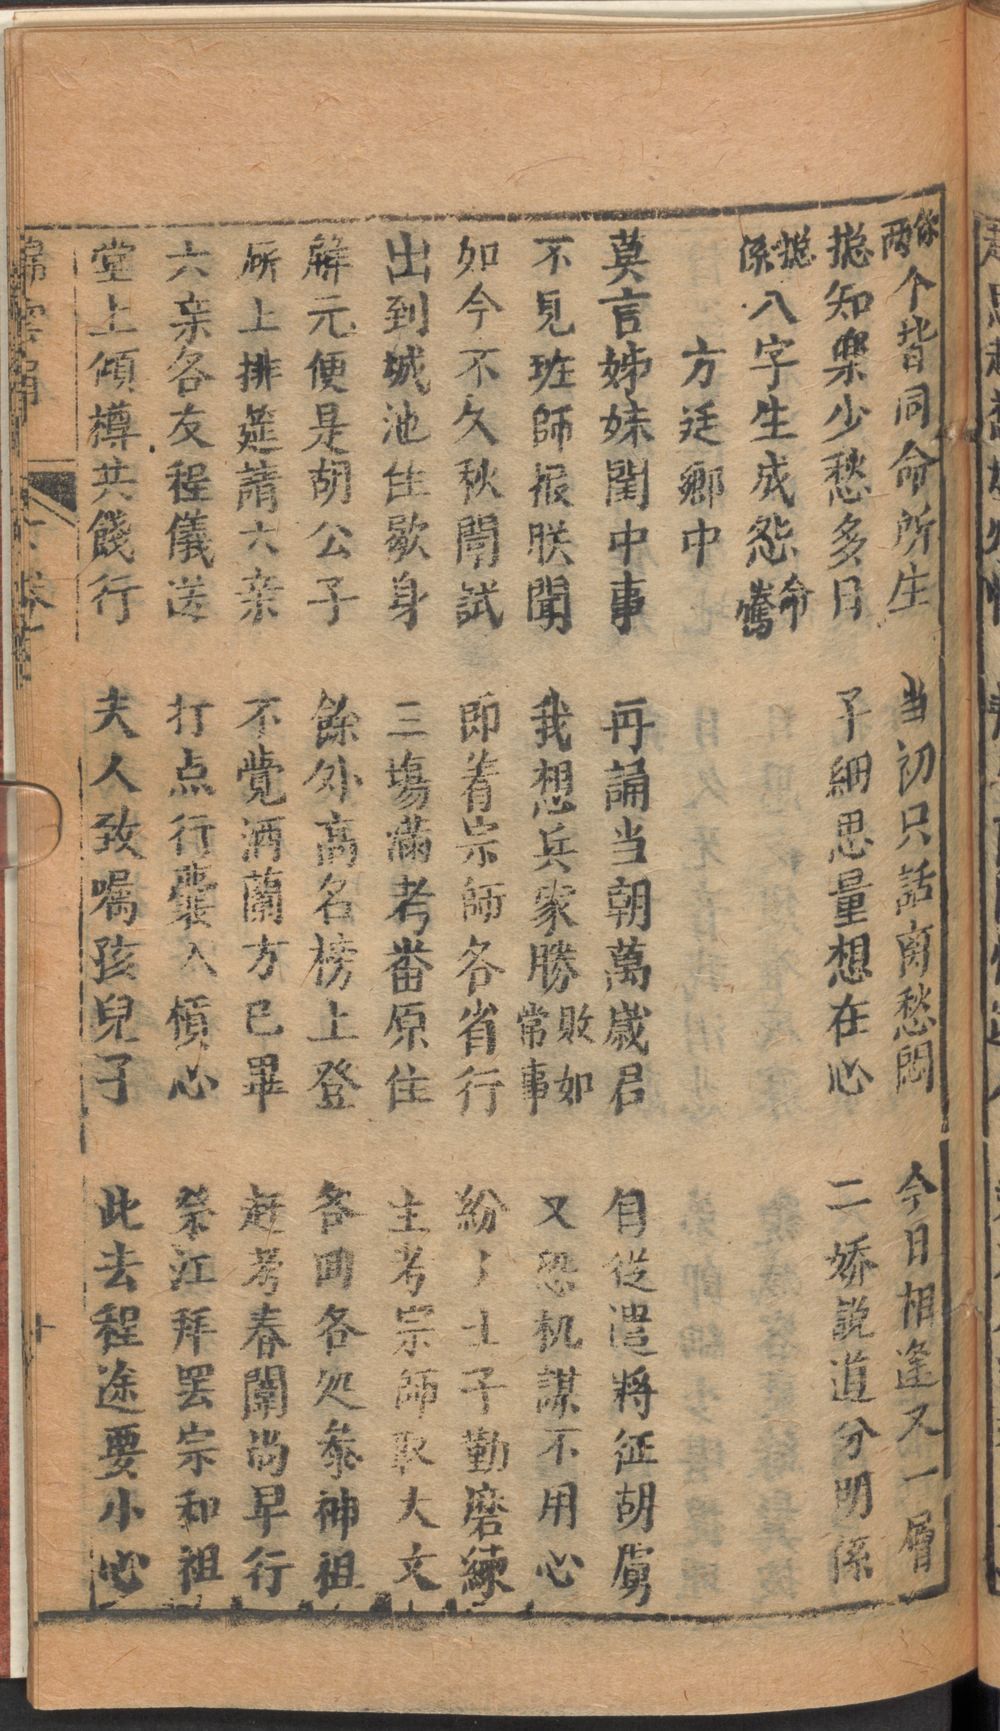 你兩个皆同命所生　当初只話商愁悶　今日相逢又一層
摠知樂少愁多日　子細思量想在心　二嬌説道分明係
摠係八字生成怨命鸞
方廷鄉中
莫言姊妹閨中事　再誦当朝萬歲君　自從遣將征胡虜
不見班師报朕聞　我想兵家勝敗如常事　又恐机謀不用心
如今不久秋闈試　即着宗師各省行　紛〻士子勤磨練
出到城池住歇身　三塲滿考畨原住　主考宗師取大文
解元便是胡公子　餘外高名榜上登　各回各处叅神祖
㕔上排筵請六亲　不覺洒蘭方已畢　赶考春闈尚早行
六亲各友程儀送　打点行囊入槓心　祭江拜罢宗和祖
堂上傾樽共餞行　夫人致嘱孩兒子　此去程途要小心
下卷
十